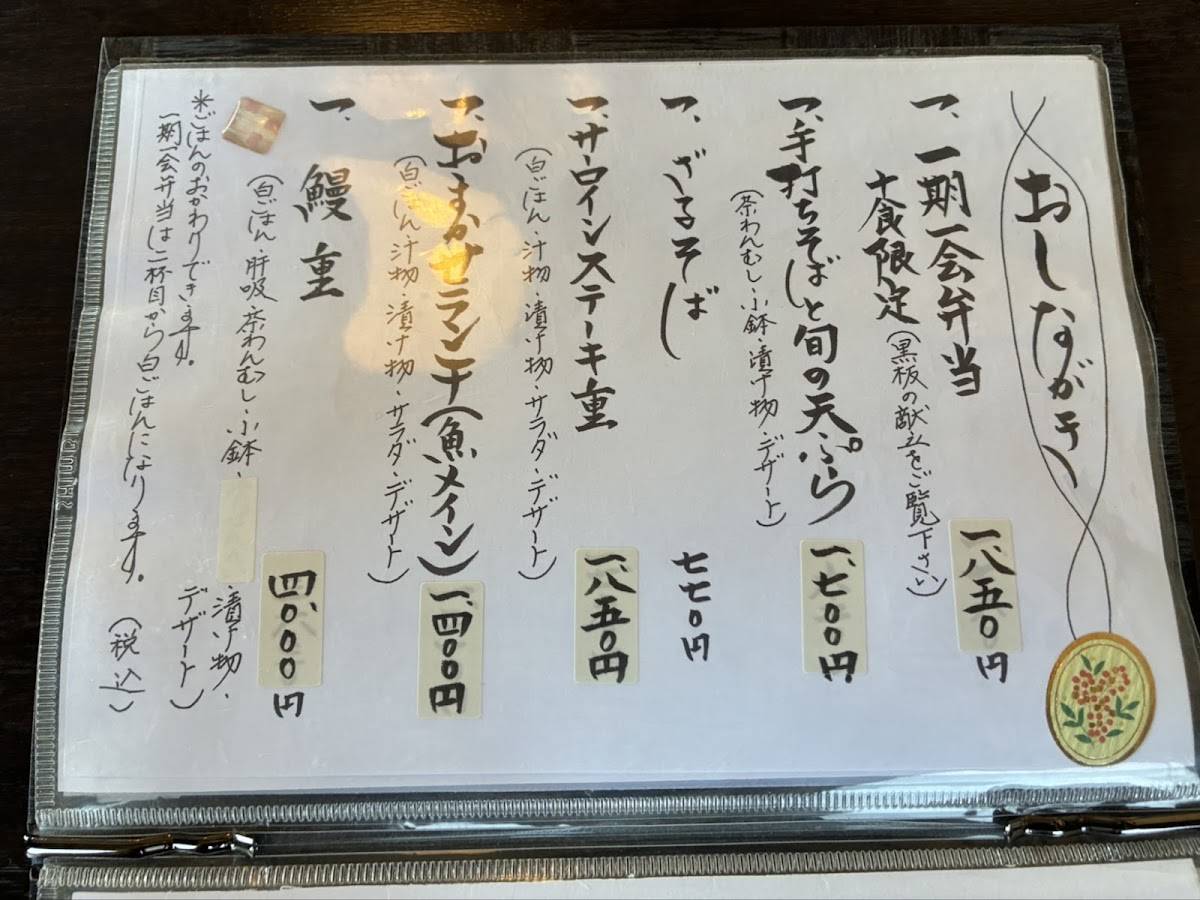 おしながき
一、一期一会弁当
十食限定(黒板の献立をご覧下さい)
一、八五〇円
一、手打ちそばと旬の天ぷら
(茶わんむし・小鉢・漬け物・デザート)
一、七〇〇円
一、ざるそば
七七〇円
一、サーロインステーキ重
(白ごはん・汁物・漬け物・サラダ・デザート)
一、八五〇円
一、おまかせランチ(魚メイン)
(白ごはん・汁物・漬け物・サラダ・デザート)
一、四〇〇円
一、鰻重
(白ごはん・肝吸・茶わんむし・小鉢・
・漬け物・
デザート)
四、〇〇〇円
*ごはんのおかわりできます。
一期一会弁当は二杯目から白ごはんになります。
(税込)